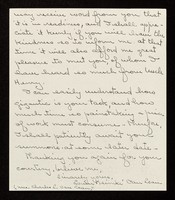 may receive word from you that
it is in readiness, and I shall appre-
ciate it keenly if you will have the
kindness to inform me at that
time. It will also afford me great
pleasure to meet you of whom I
have heard so much from Uncle
Henry.
I can easily understand how
gigantic is your task, and how
much time so painstaking a piece
of work must consume. I
I shall patiently await your
summons at some later date.
Thanking you again for your
courtesy, believe me,
Sincerely yours,